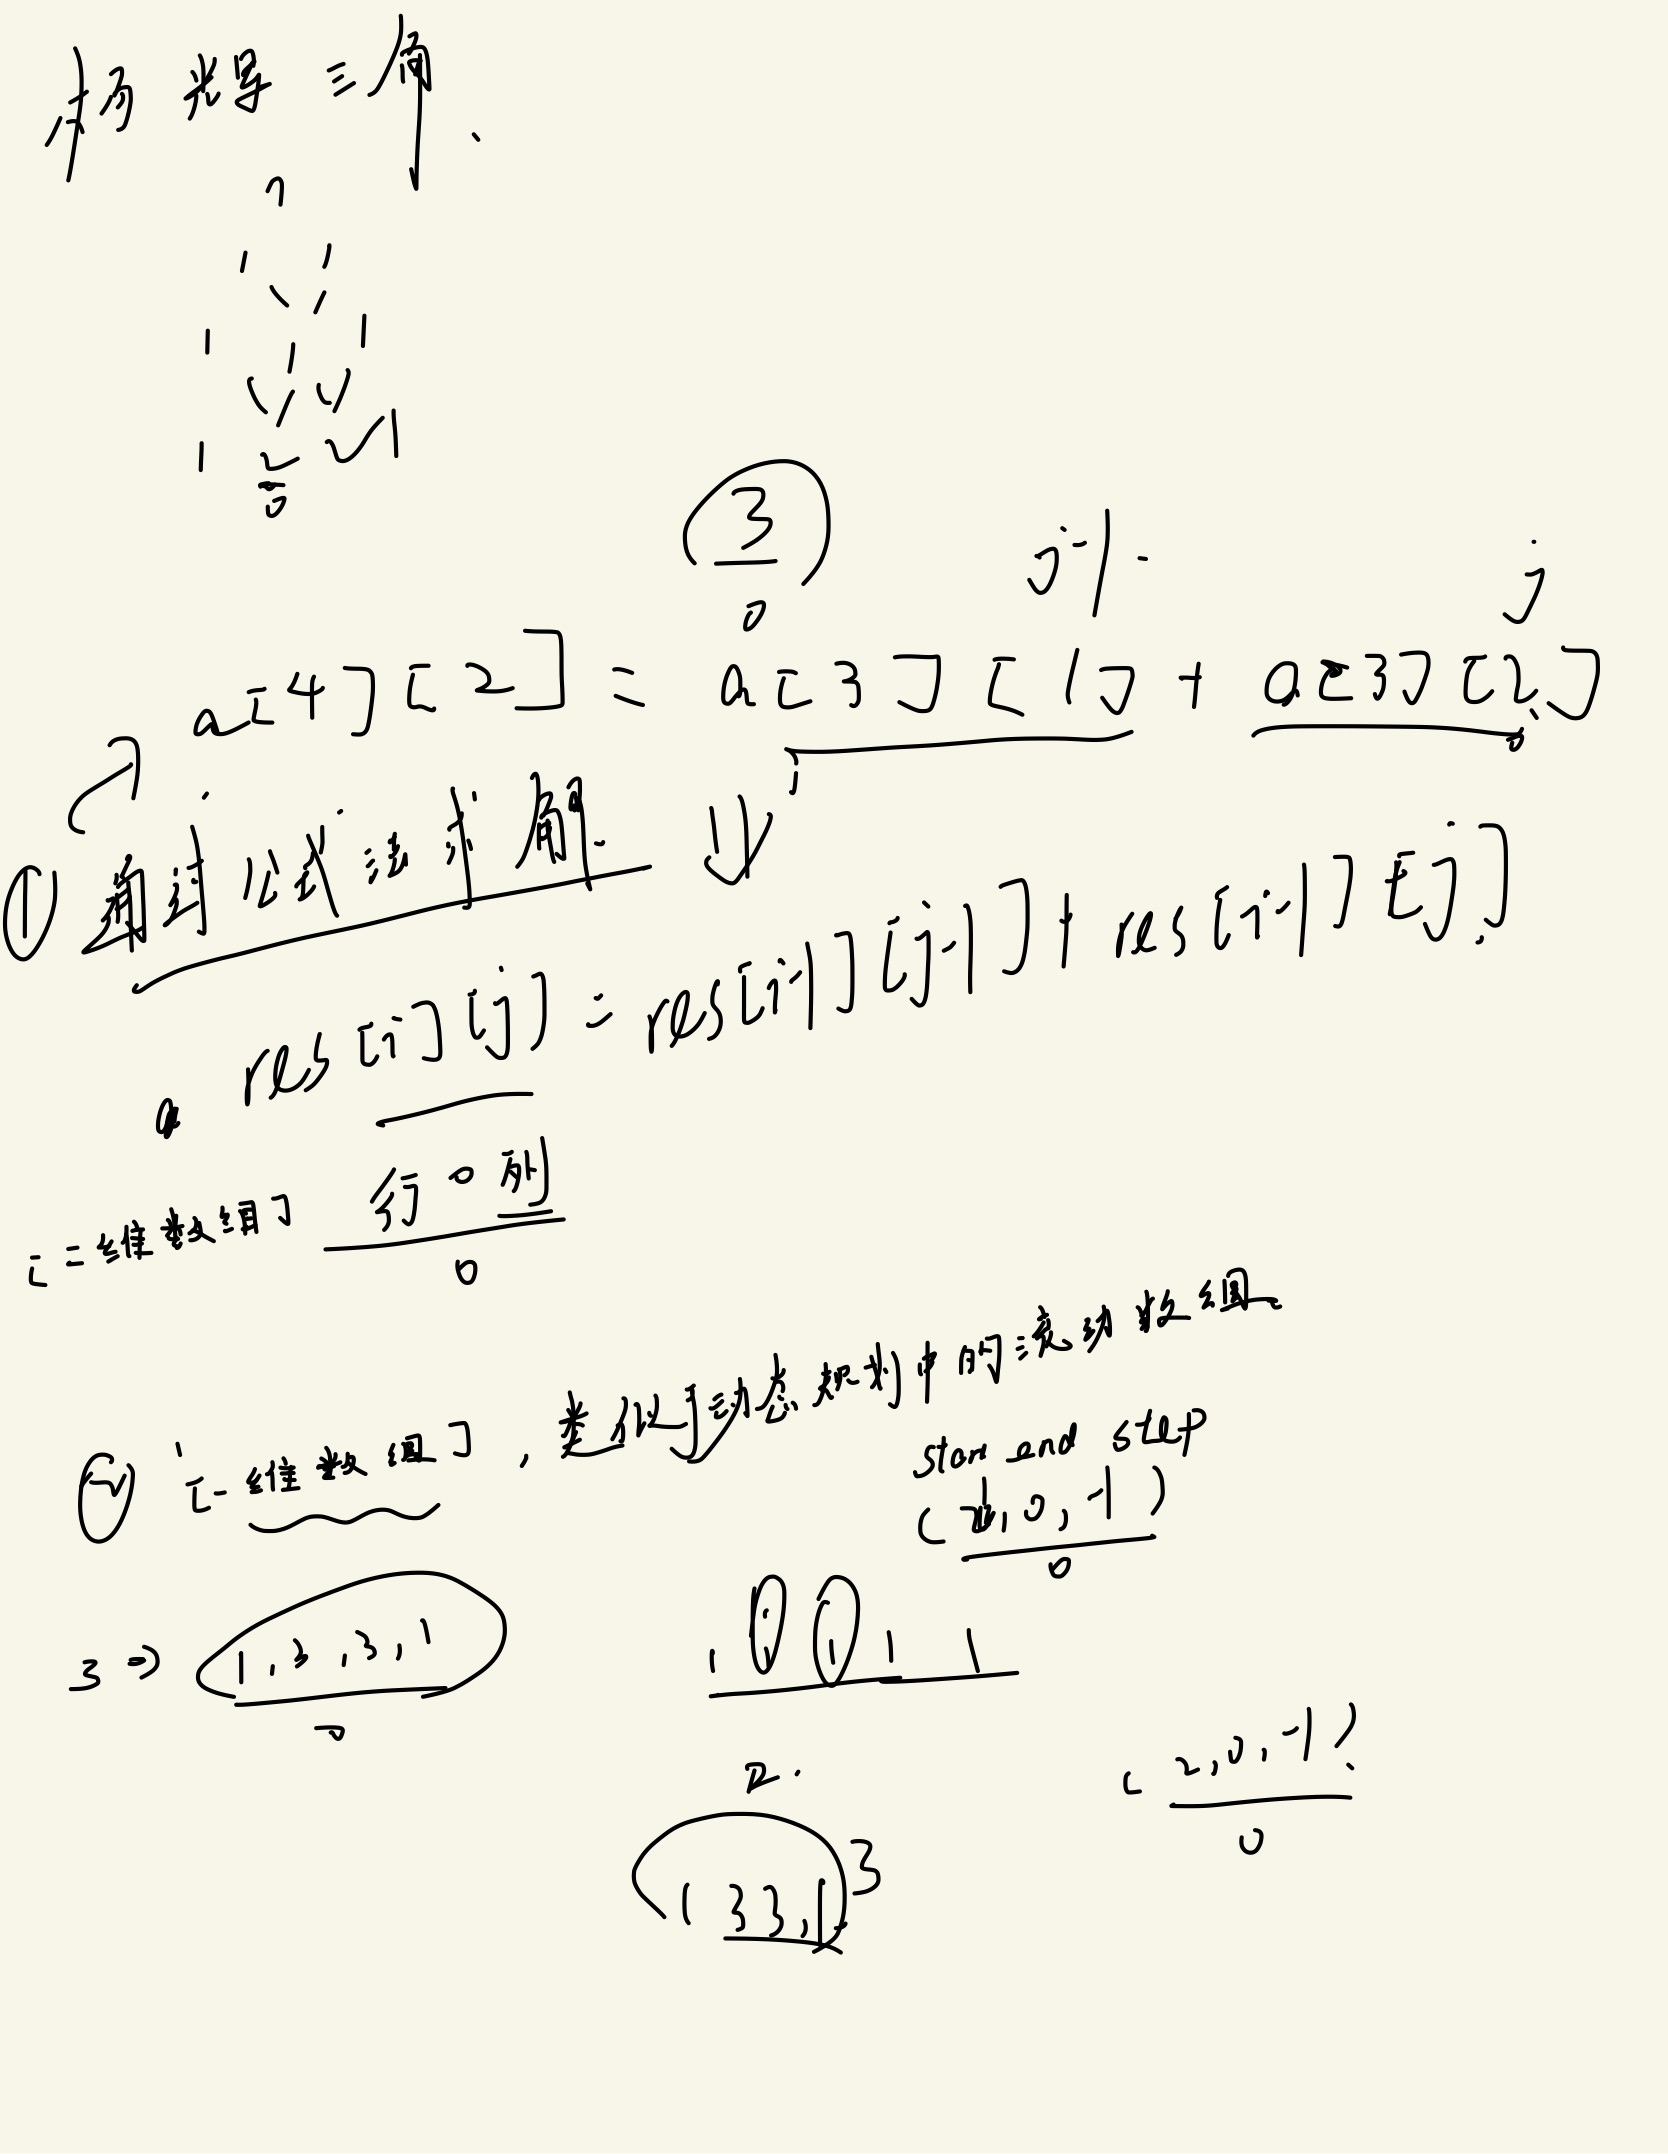 三角
1 1
1 1 1
1 2 2 1
3
j-1 j
a[4][2] = a[3][1] + a[3][2]
① 通过公式法求解
res[i][j] = res[i-1][j-1] + res[i-1][j]
[二维数组] 行。列
② [一维数组],类似于动态规划中的滚动数组
start end step
( , 0, -1)
3 => 1, 3, 3, 1
1 1 1 1 1
2.
(2, 0, -1)
1 3 3, 1 3